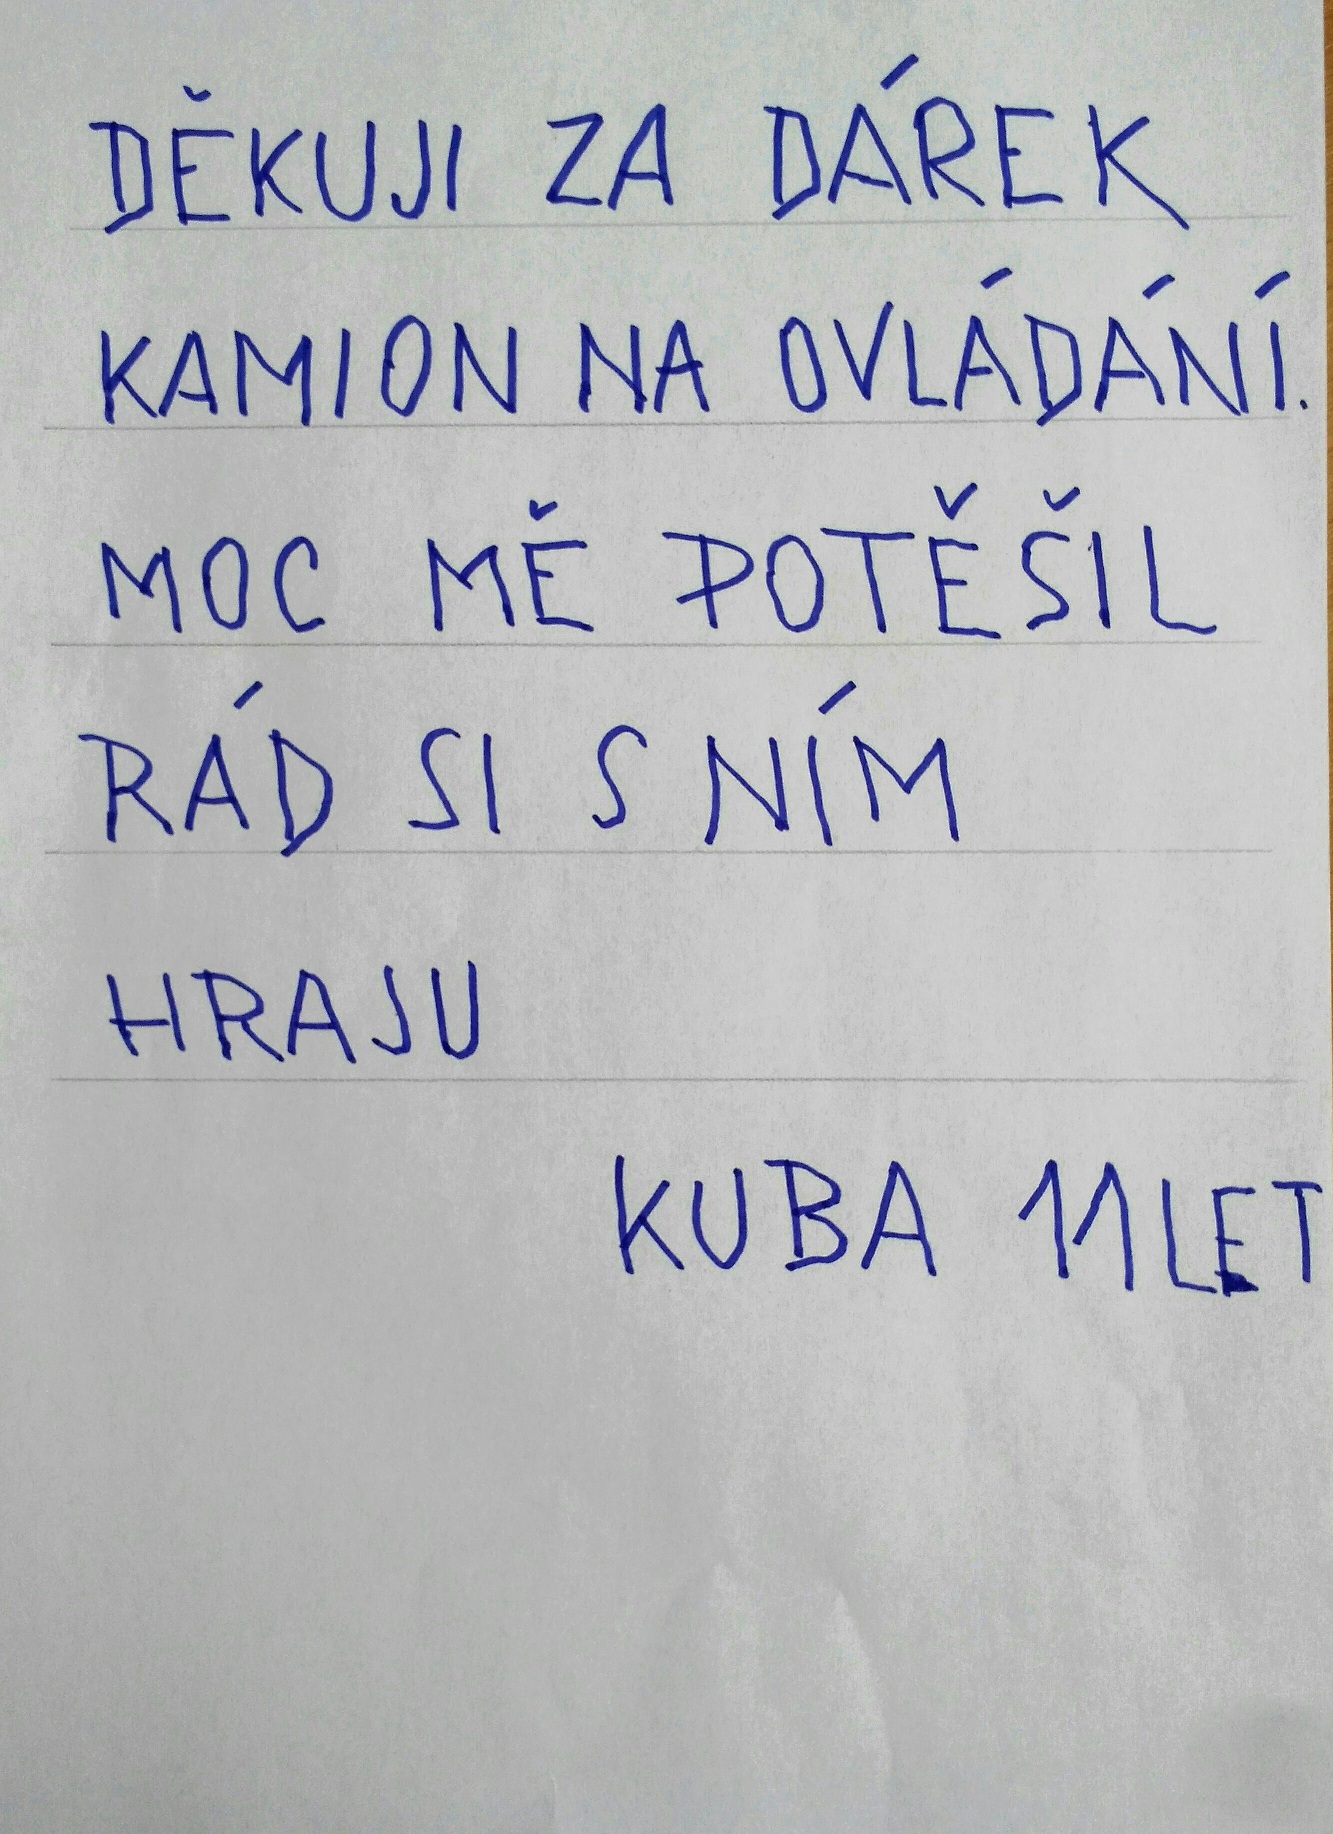 DĚKUJI ZA DÁREK
KAMION NA OVLÁDÁNÍ.
MOC MĚ POTĚŠIL
RÁD SI S NÍM
HRAJU
KUBA 11 LET